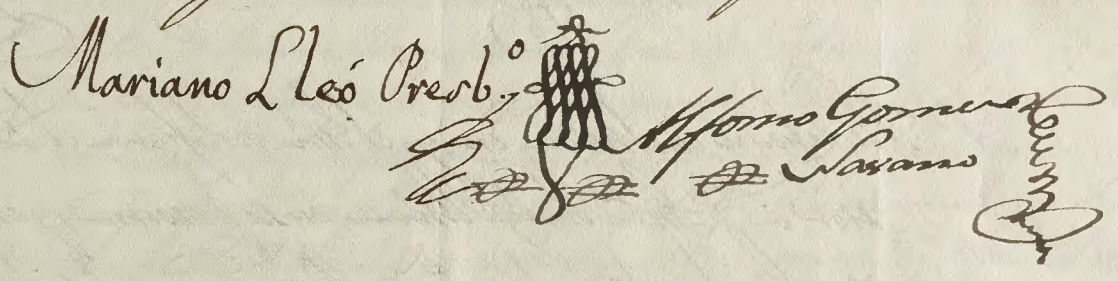 Mariano Lleó Presb.º
Alfonso Gomez
Navarro